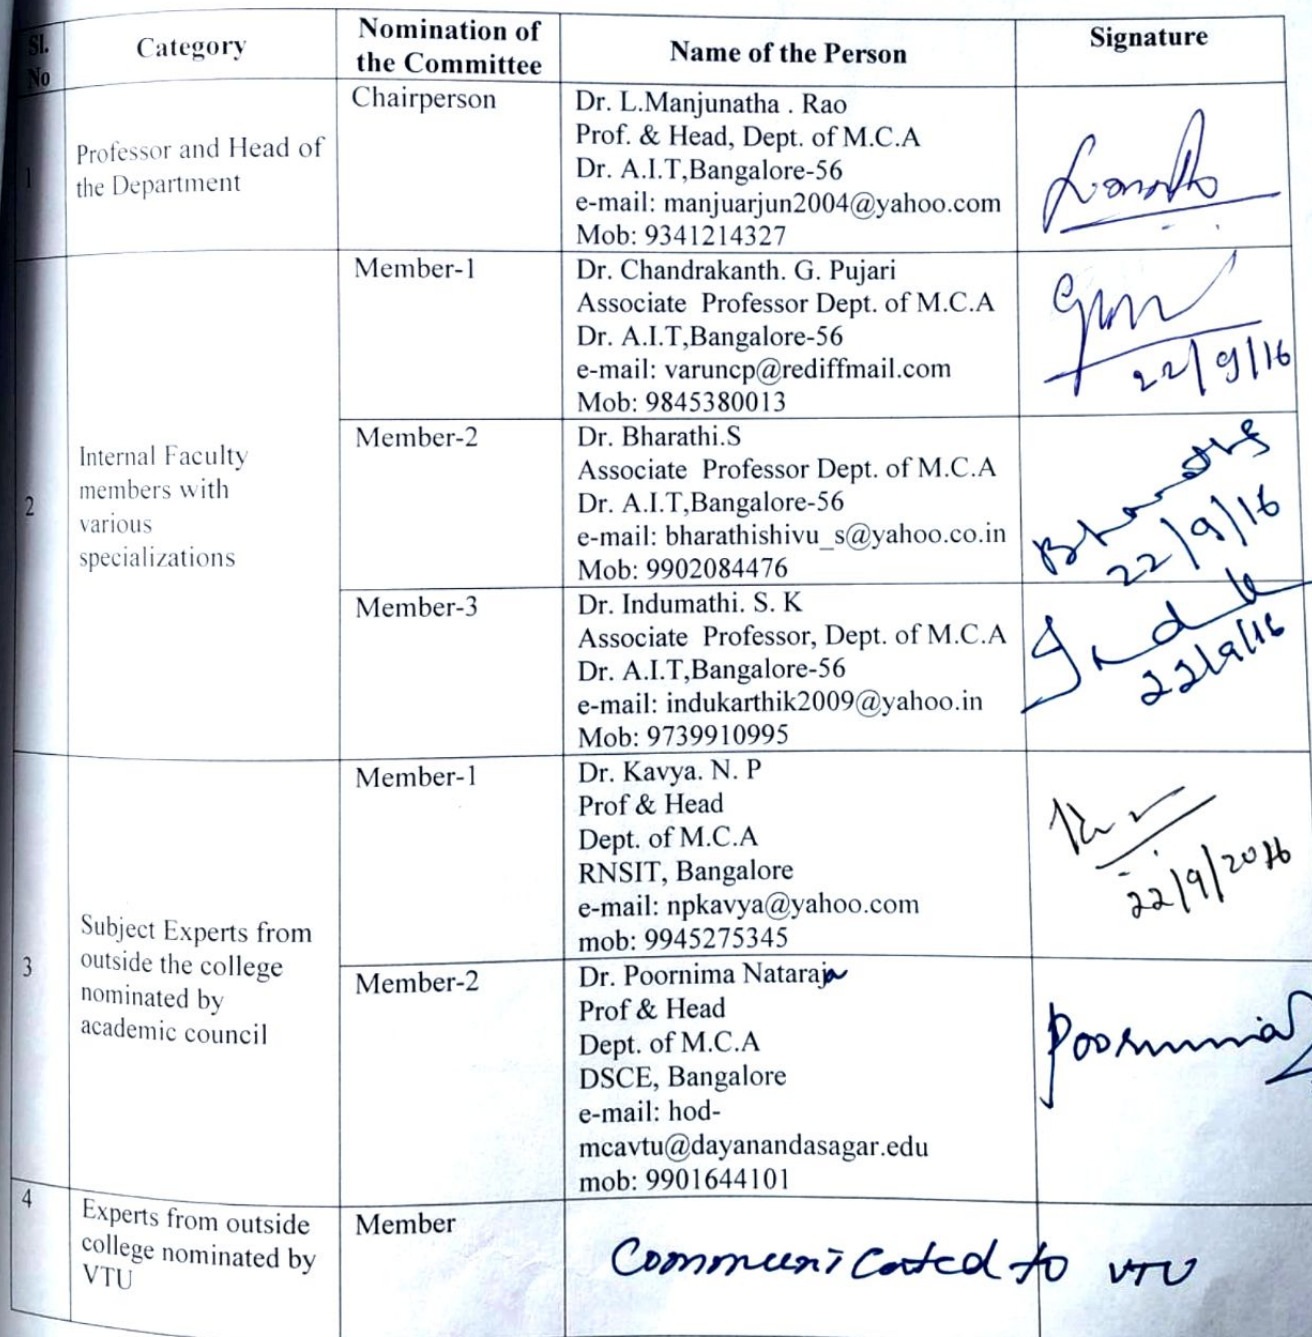 Sl. No
Category
Nomination of
the Committee
Name of the Person
Signature
1
Professor and Head of
the Department
Chairperson
Dr. L.Manjunatha . Rao
Prof. & Head, Dept. of M.C.A
Dr. A.I.T,Bangalore-56
e-mail: manjuarjun2004@yahoo.com
Mob: 9341214327
2
Internal Faculty
members with
various
specializations
Member-1
Dr. Chandrakanth. G. Pujari
Associate Professor Dept. of M.C.A
Dr. A.I.T,Bangalore-56
e-mail: varuncp@rediffmail.com
Mob: 9845380013
22/9/16
Member-2
Dr. Bharathi.S
Associate Professor Dept. of M.C.A
Dr. A.I.T,Bangalore-56
e-mail: bharathishivu_s@yahoo.co.in
Mob: 9902084476
22/9/16
Member-3
Dr. Indumathi. S. K
Associate Professor, Dept. of M.C.A
Dr. A.I.T,Bangalore-56
e-mail: indukarthik2009@yahoo.in
Mob: 9739910995
22/9/16
3
Subject Experts from
outside the college
nominated by
academic council
Member-1
Dr. Kavya. N. P
Prof & Head
Dept. of M.C.A
RNSIT, Bangalore
e-mail: npkavya@yahoo.com
mob: 9945275345
22/9/2016
Member-2
Dr. Poornima Nataraja
Prof & Head
Dept. of M.C.A
DSCE, Bangalore
e-mail: hod-
mcavtu@dayanandasagar.edu
mob: 9901644101
Poornima
4
Experts from outside
college nominated by
VTU
Member
Communicated to VTU